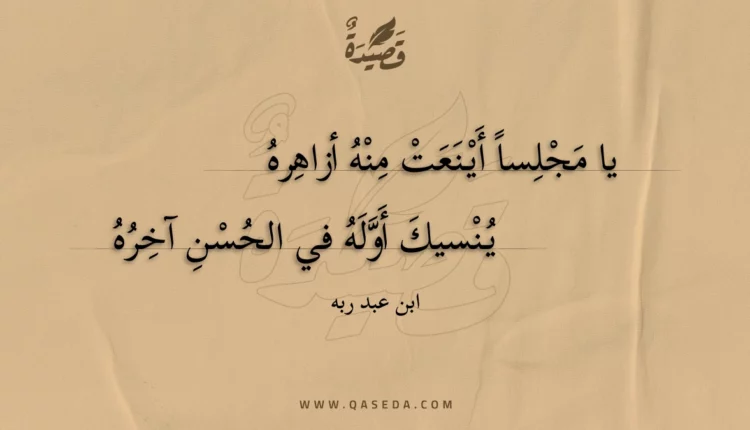 قَصِيدَةٌ
يا مَجْلِساً أَيْنَعَتْ مِنْهُ أزاهِرهُ
يُنْسيكَ أَوَّلَهُ في الحُسْنِ آخِرُهُ
ابن عبد ربه
WWW.QASEDA.COM